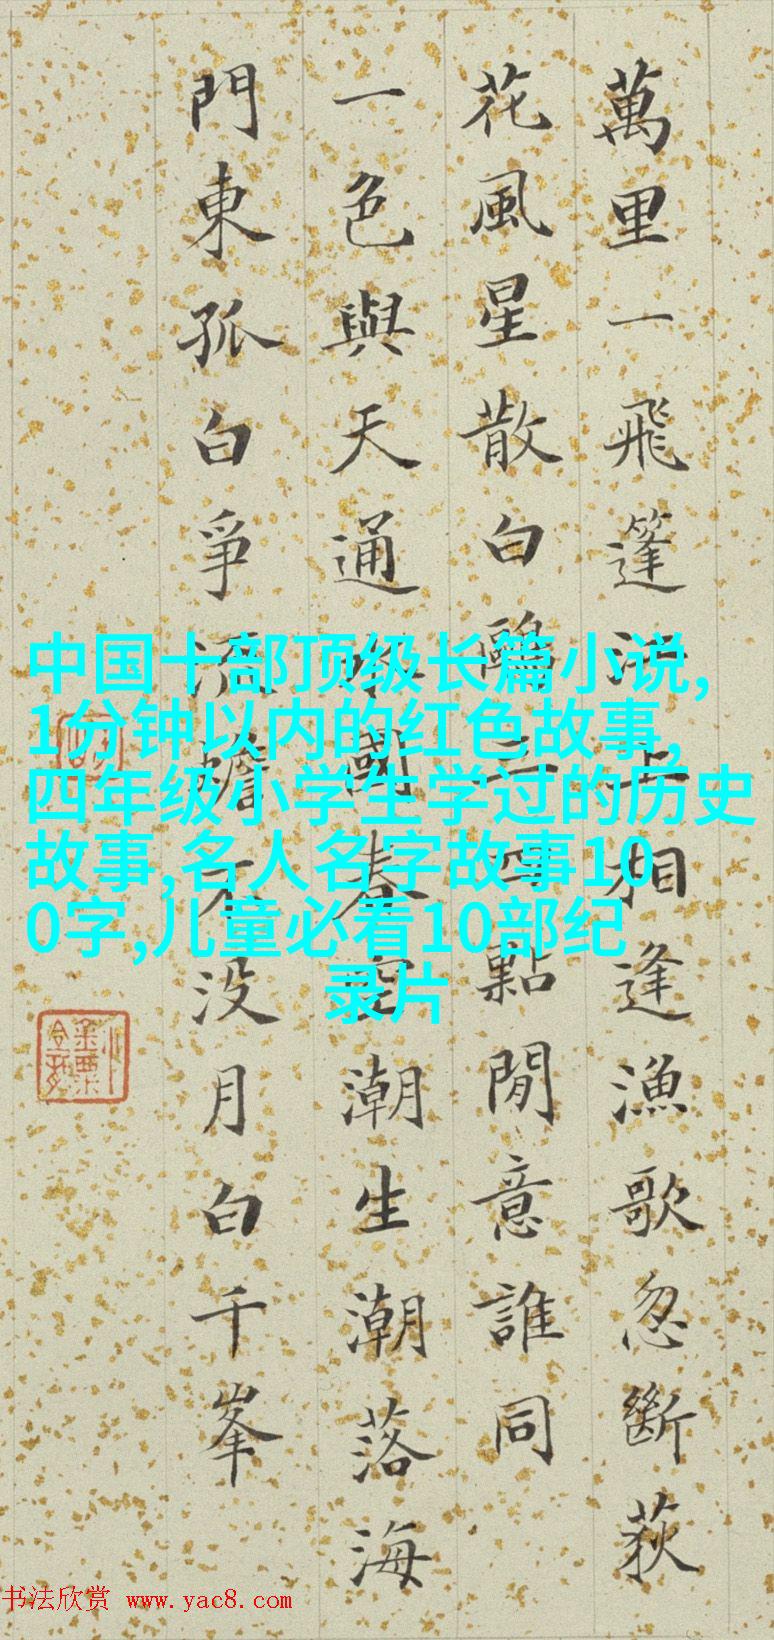 萬里一飛篷江上相逢漁歌忽斷荻
花風星散白鷗三四點閒意誰同
一色與天通國春空潮生潮落海
門東孤白爭蟾不没月白千峯
中国十部顶级长篇小说,
1分钟以内的红色故事,
四年级小学生学过的历史
故事,名人名字故事10
0字,儿童必看10部纪
录片
书法欣赏 www.yac8.com